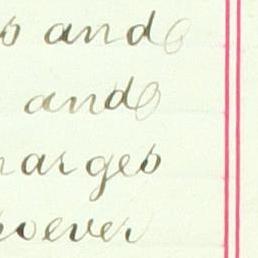 s and
and
harges
soever